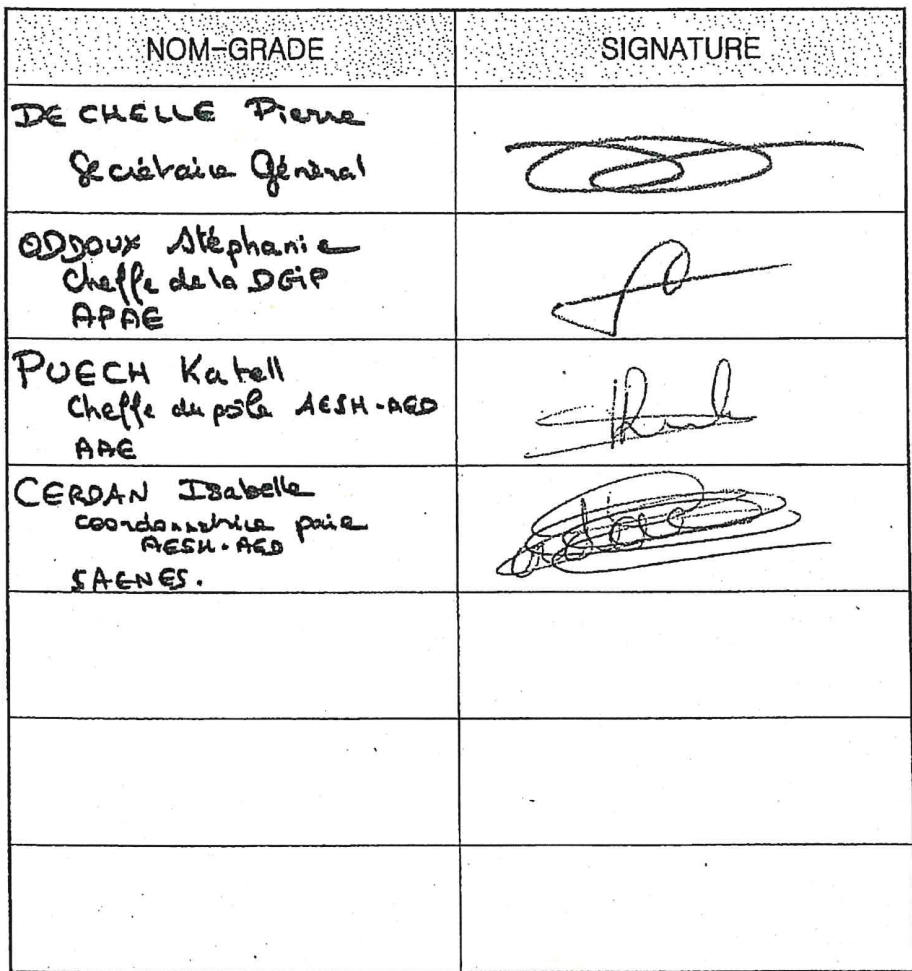 NOM-GRADE
SIGNATURE
DE CHELLE Pierre
Secrétaire Général
ODDOUX Stéphanie
Cheffe de la DGIP
APAE
PUECH Katell
Cheffe du pôle AESH-AED
AAE
CERDAN Isabelle
coordonnatrice paie
AESH-AED
SAENES.